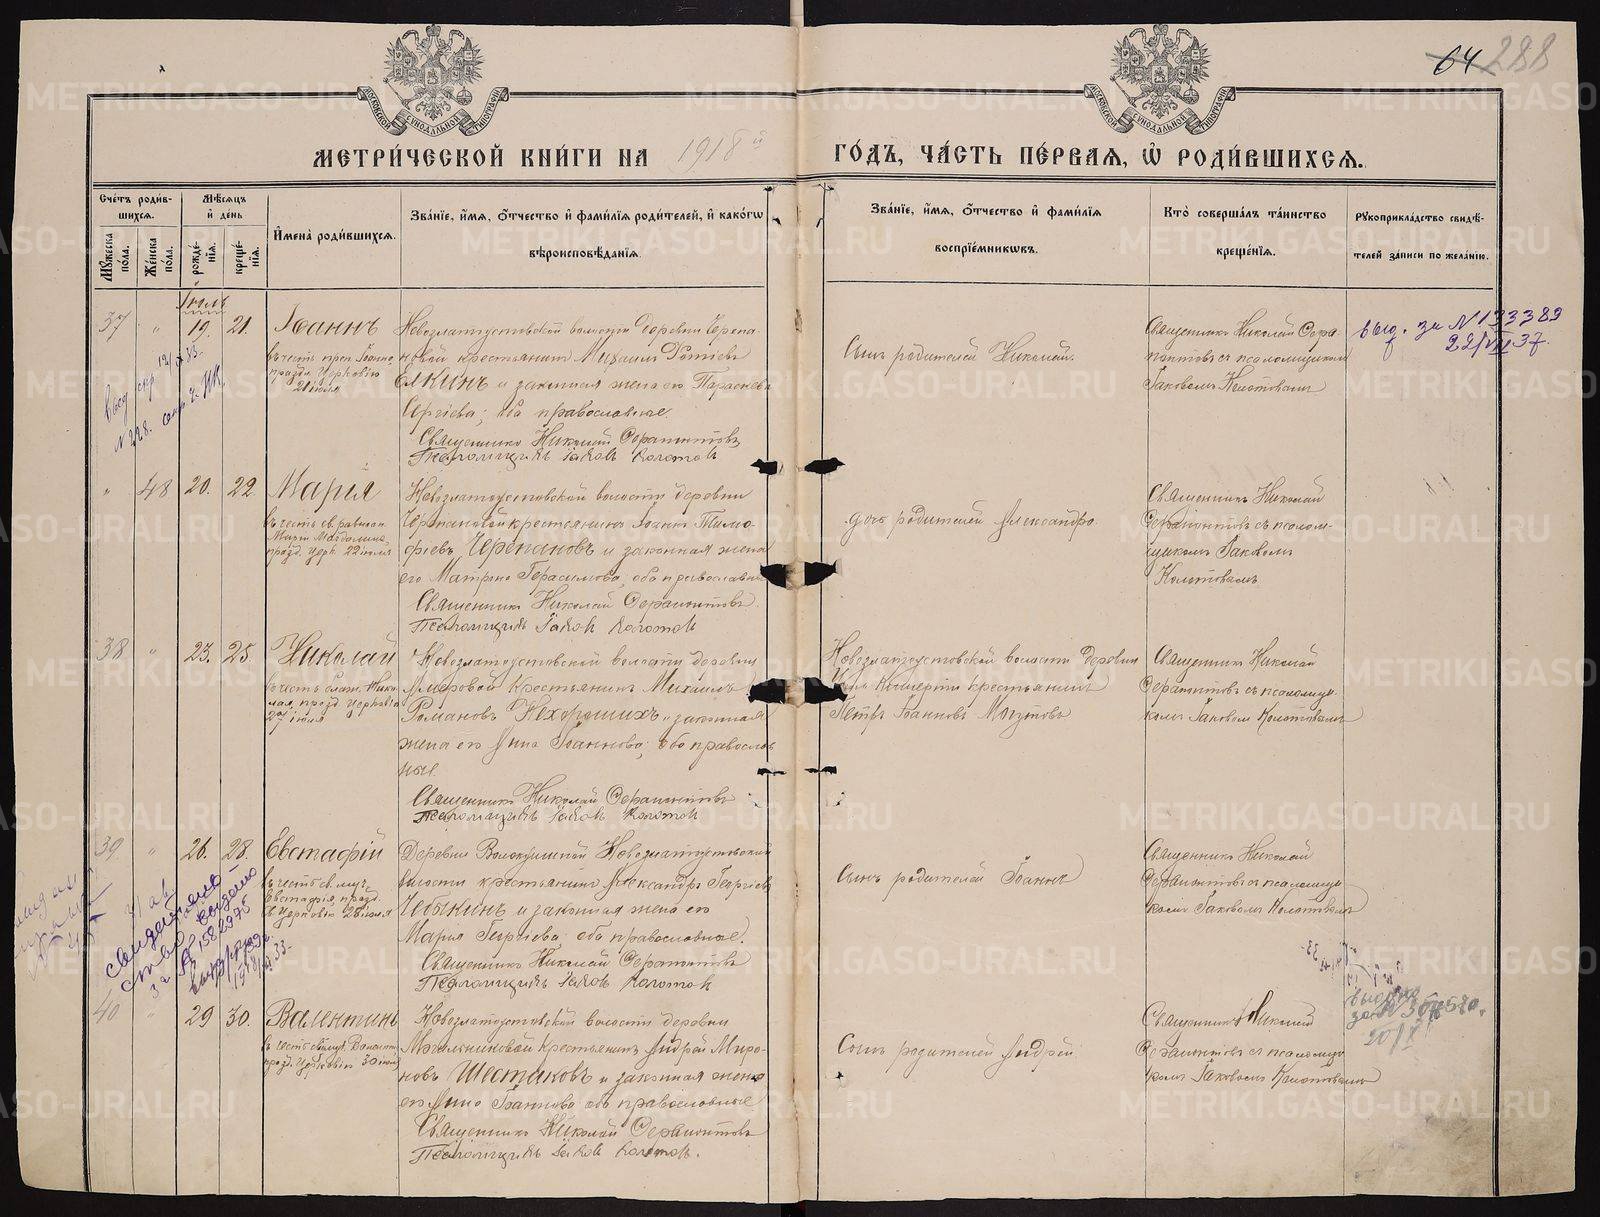 64 288
МЕТРИ́ЧЕСКОЙ КНИ́ГИ НА 1918й ГО́ДЪ, ЧА́СТЬ ПЕ́РВАЯ, Ѡ҆ РОДИ́ВШИХСЯ.
МОСКОВСКОЙ СѴНОДАЛЬНОЙ ТИПОГРАФІИ
МОСКОВСКОЙ СѴНОДАЛЬНОЙ ТИПОГРАФІИ
Сче́тъ роди́в-
шихся.
Мꙋжеска по́ла.
Же́нска по́ла.
Мѣ́сяцъ и҆ де́нь
рожде́-
нїя.
креще́-
нїя.
И҆мена̀ роди́вшихся.
Зва́нїе, и҆́мя, ѻ҆́тчество и҆ фами́лїя роди́телей, и҆ како́гѡ
вѣроисповѣ́данїя.
Зва́нїе, и҆́мя, ѻ҆́тчество и҆ фами́лїя
восприе́мникѡвъ.
Кто̀ соверша́лъ та́инство
креще́нїя.
Рꙋкоприкла́дство свидѣ́-
телей за́писи по жела́нїю.
Іюль
37 " 19. 21. Іоаннъ
въ честь прп. Іоанна
празд. Церковію
21 іюля
Новозлатоустовской волости деревни Черепа-
новой крестьянинъ Михаилъ Фотіевъ
Елкинъ и законная жена его Параскева
Сергіева; оба православные.
Священникъ Николай Серапіонтовъ
Псаломщикъ Іаковъ Колотов
Сынъ родителей Николай.
Священникъ Николай Сера-
піонтовъ съ псаломщикомъ
Іаковомъ Колотовымъ
выд. за N 133389
22/VII 37.
" 48 20. 22. Марія
въ честь св. равноап.
Маріи Магдалины
празд. церк. 22 іюля
Новозлатоустовской волости деревни
Черепановой крестьянинъ Іоаннъ Тимо-
фіевъ Черепановъ и законная жена
его Матрона Герасимова, оба православные
Священникъ Николай Серапіонтовъ.
Псаломщикъ Іаков Колотов
дочь родителей Александра.
Священникъ Николай
Серапіонтовъ съ псалом-
щикомъ Іаковомъ
Колотовымъ
38 " 23. 25. Николай
Новозлатоустовской волости деревни
крестьянинъ Михаилъ
Романовъ Нехорошихъ и законная
жена его Анна Іоаннова; оба православ
ные.
Священникъ Николай Серапіонтовъ
Псаломщикъ Іаковъ Колотов
Новозлатоустовской волости деревни
крестьянинъ
Петръ Іоанновъ
Священникъ Николай
Серапіонтовъ съ псаломщи-
комъ Іаковомъ Колотовымъ
39 " 26. 28. Евстафій
въ честь св. муч.
Евстафія, празд.
Церковію 28 іюля
Деревни Волокушиной Новозлатоустовской
волости крестьянинъ Александръ Георгіевъ
Чебыкинъ и законная жена его
Марія Георгіева оба православные.
Священникъ Николай Серапіонтовъ
Псаломщикъ Іаковъ Колотов
Сынъ родителей Іоаннъ
Священникъ Николай
Серапіонтовъ съ псаломщи-
комъ Іаковомъ Колотовымъ
40 " 29 30. Валентинъ
празд. Церковію 30 іюля
Новозлатоустовской волости деревни
Могильниковой крестьянинъ Андрей Миро-
новъ Шестаковъ и законная жена
его Анна Іоаннова оба православные
Священникъ Николай Серапіонтовъ
Псаломщикъ Іаковъ Колотов.
Сынъ родителей Андрей
Священникъ Николай
Серапіонтовъ съ псаломщи-
комъ Іаковомъ Колотовымъ
METRIKI.GASO-URAL.RU